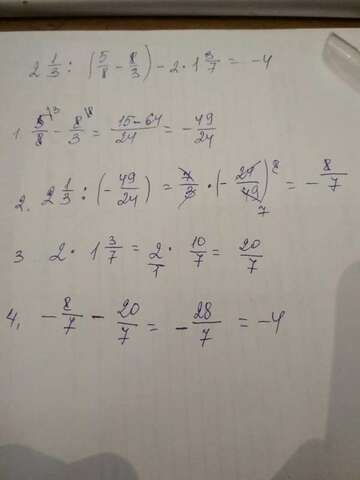 2 1/3 : (5/8 - 8/3) - 2 · 1 3/7 = -4
1. 5/8 \3 - 8/3 \8 = 15-64/24 = - 49/24
2. 2 1/3 : (- 49/24) = 7/3 · (- 24/49) 8 7 = - 8/7
3 2 · 1 3/7 = 2/1 · 10/7 = 20/7
4, - 8/7 - 20/7 = - 28/7 = -4